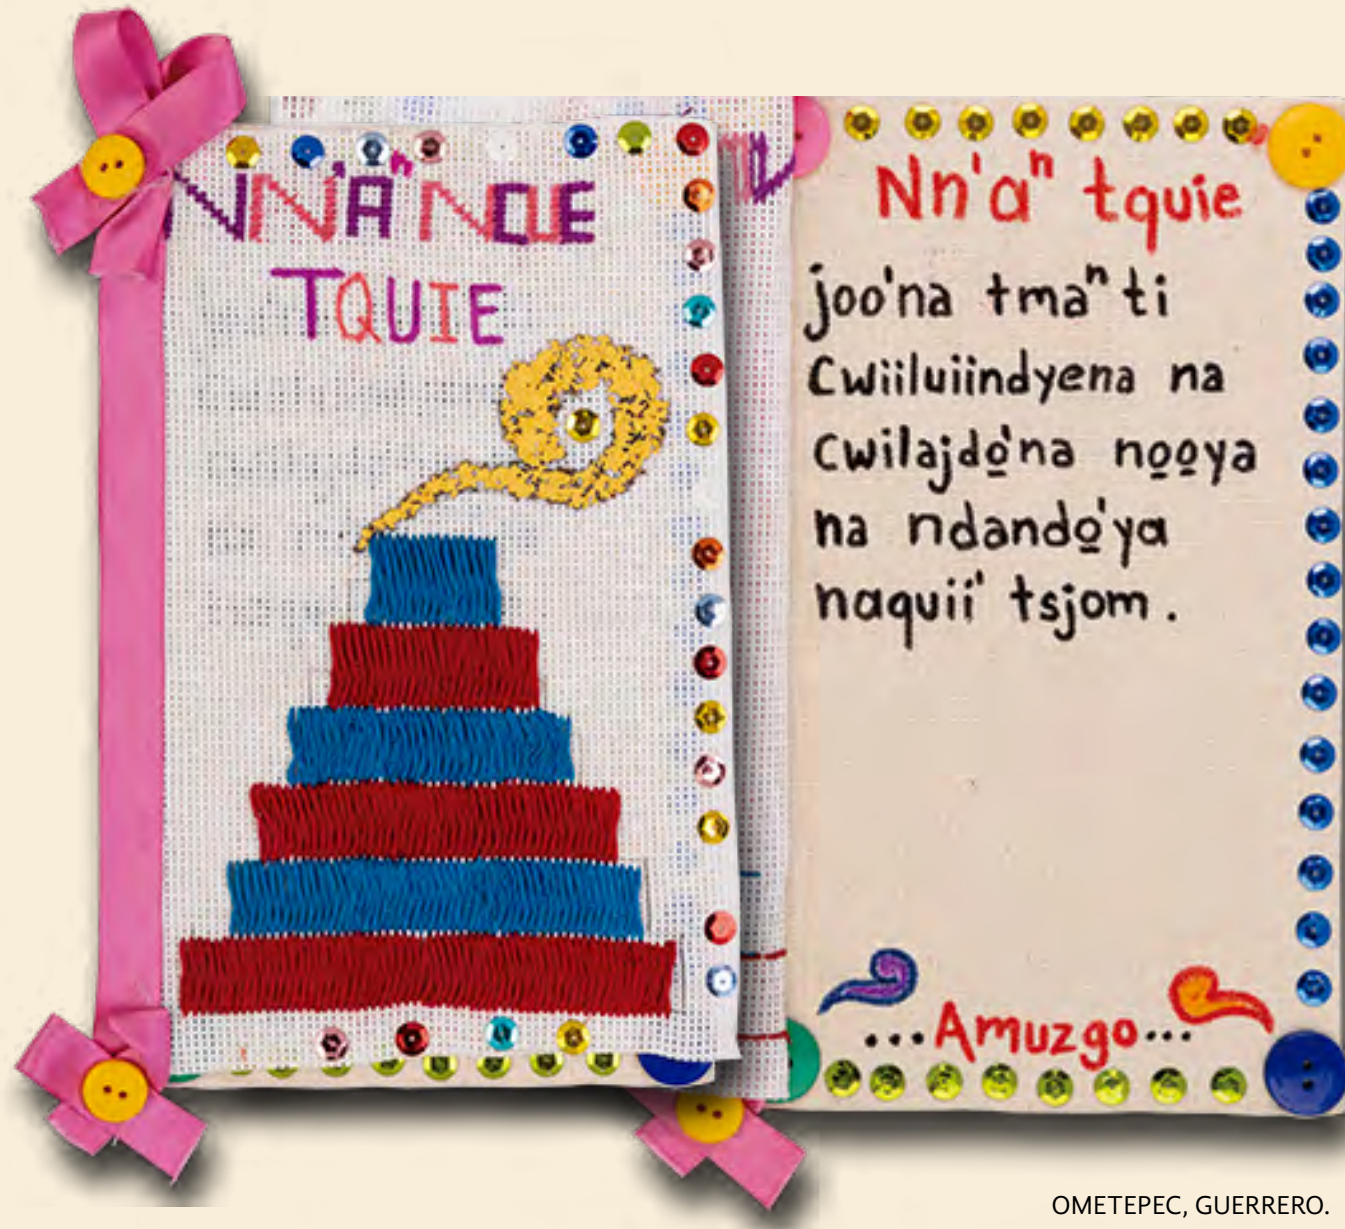 NN'AⁿNCUE
TQUIE
Nn'aⁿ tquie
joo'na tmaⁿti
Cwiiluiindyena na
cwilajdo̱'na no̱o̱ya
na ndando̱'ya
naquii' tsjom.
...Amuzgo...
OMETEPEC, GUERRERO.